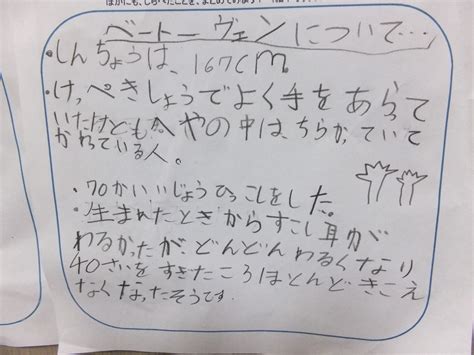 ほかにも、しらべたことを、まとめてみよう!
ベートーヴェンについて…
・しんちょうは、167cm
・けっぺきしょうでよく手をあらって
いたけどもへやの中は、ちらかっていて
かわっている人。
・70かいいじょうひっこしをした。
・生まれたときからすこし耳が
わるかったが、どんどんわるくなり
40さいをすぎたころほとんどきこえ
なくなったそうです。